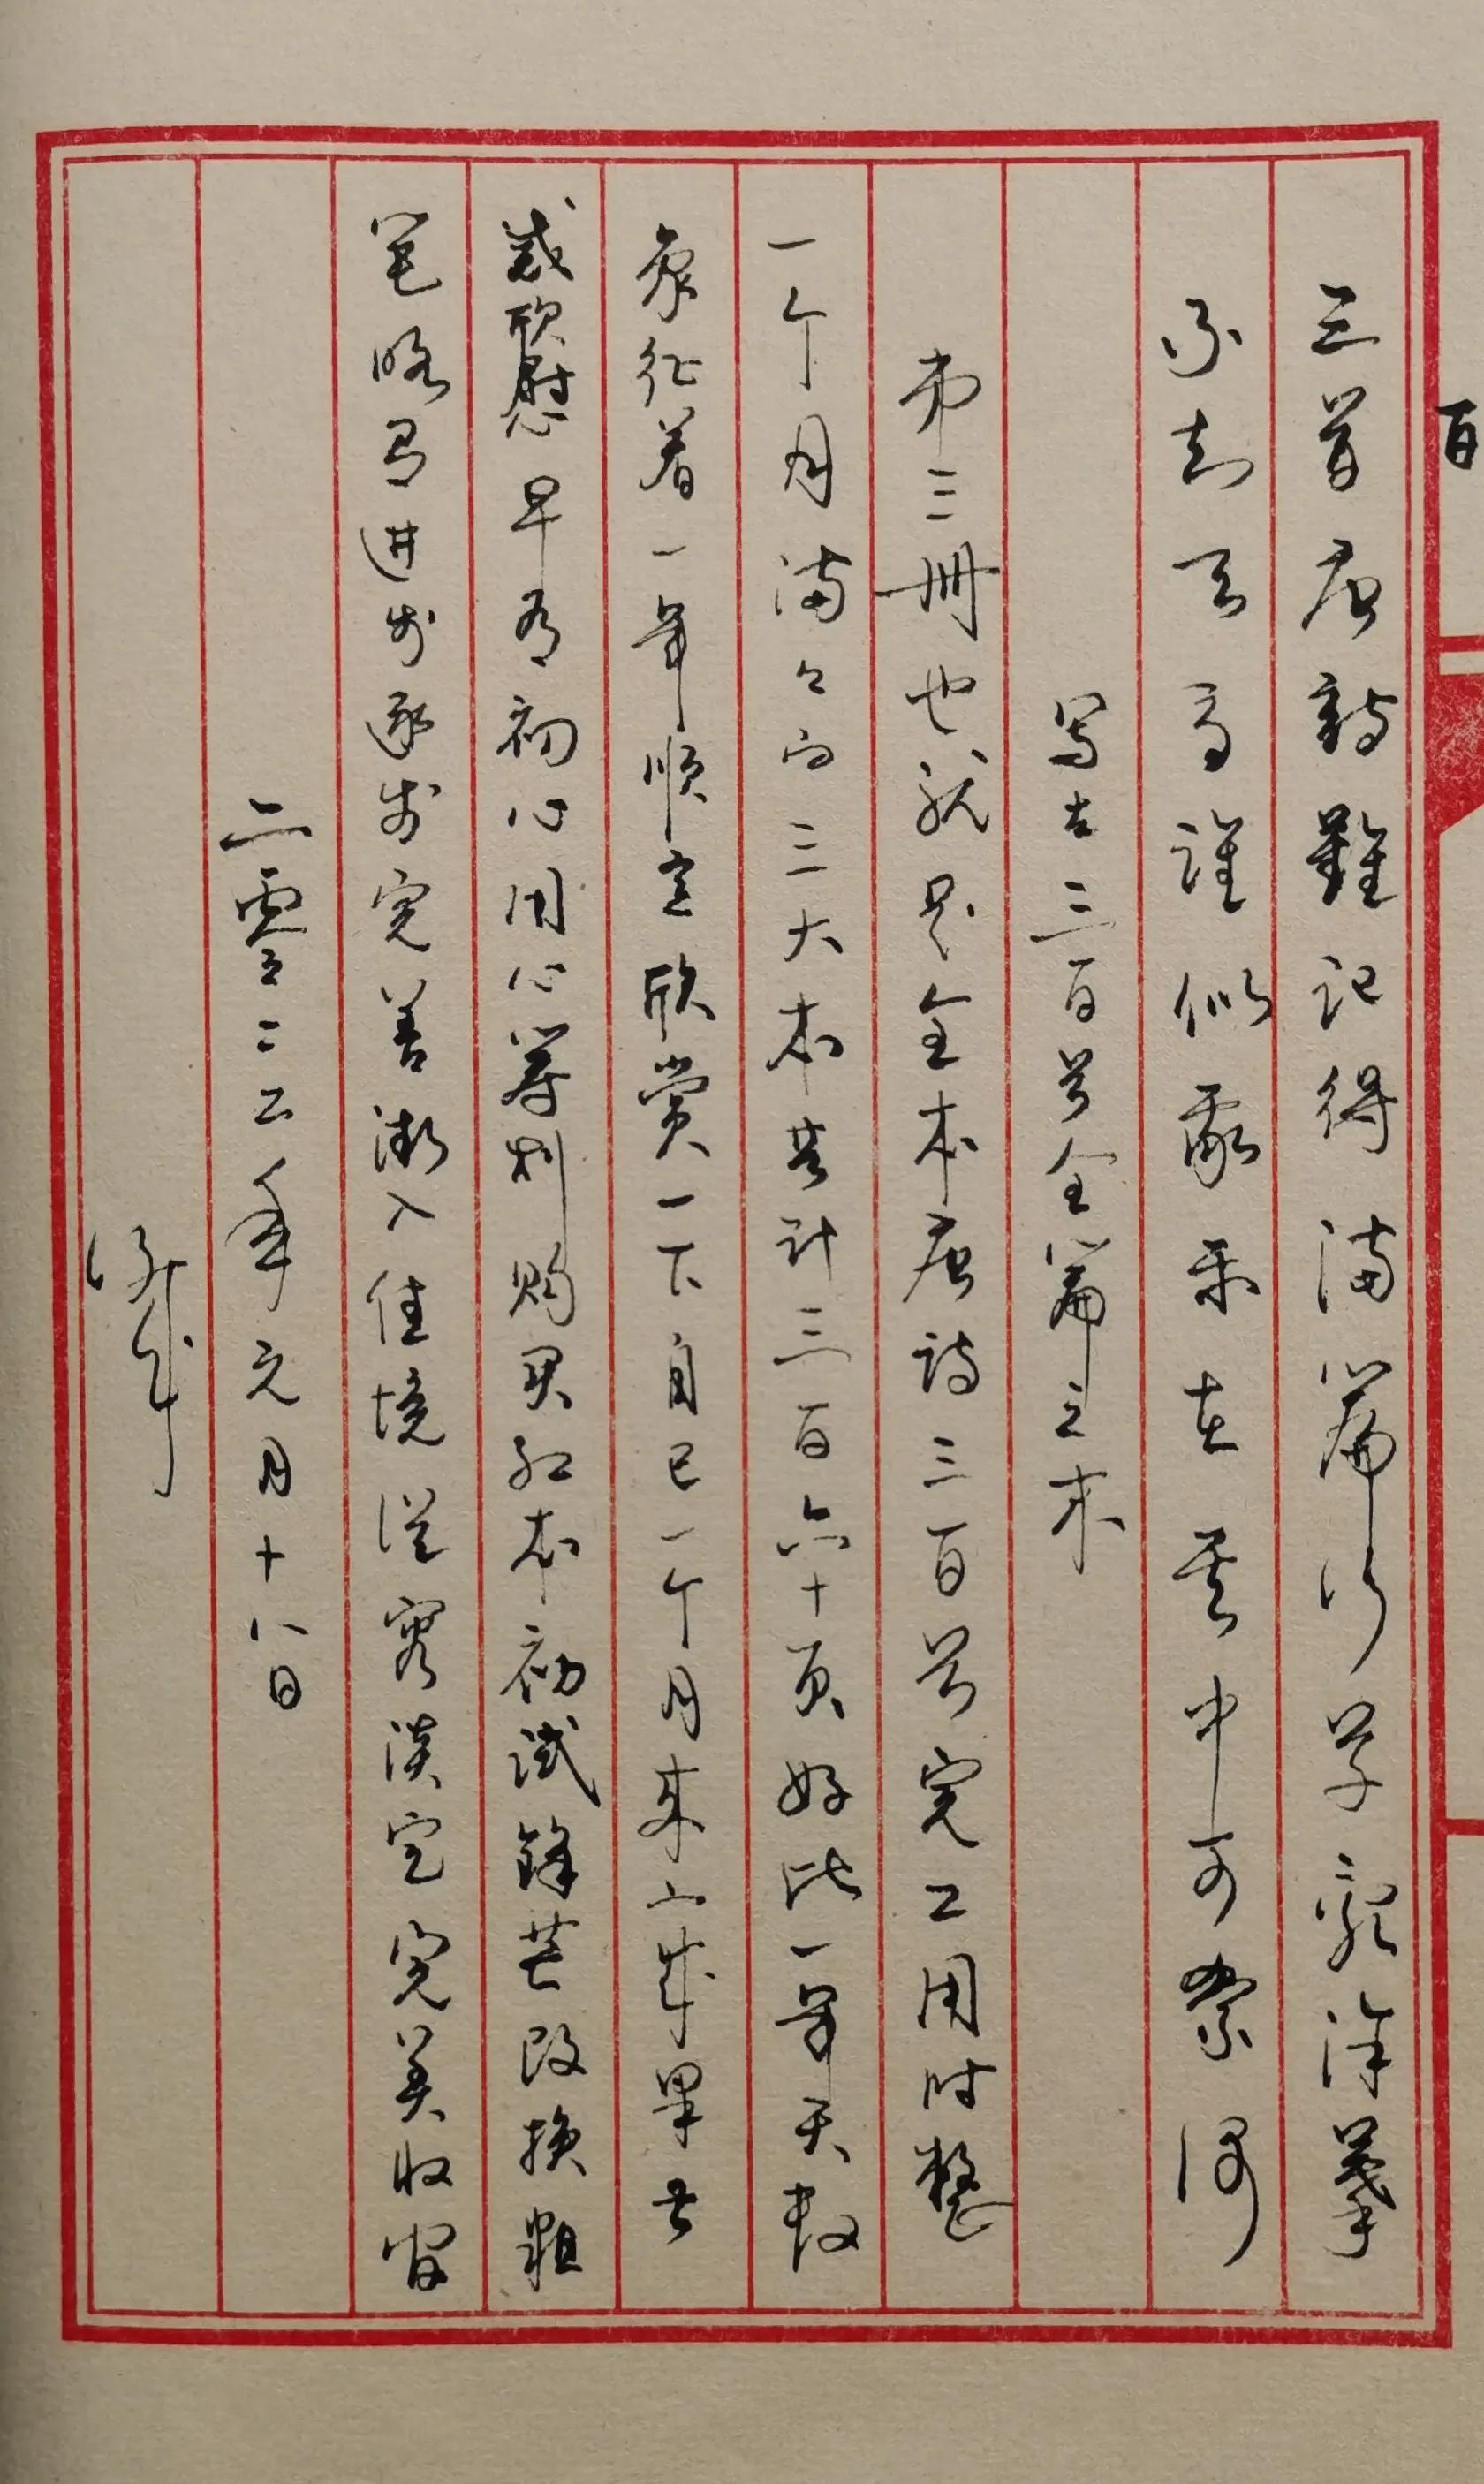 百
三首唐诗難记得满篇行草亂涂摹
不知天高谁似我乐在其中可奈何
写在三百首全篇之末
第三册也就是全本唐诗三百首完工用时整
一个月满々当三大本共计三百六十页好比一年天数
象征着一年顺意欣赏一下自己一个月来的成果甚
感欣慰早有初心用心筹划购买红本初试锋芒改换粗
笔略有进步逐步完善渐入佳境从容淡定完美收官
二零二二年元月十八日